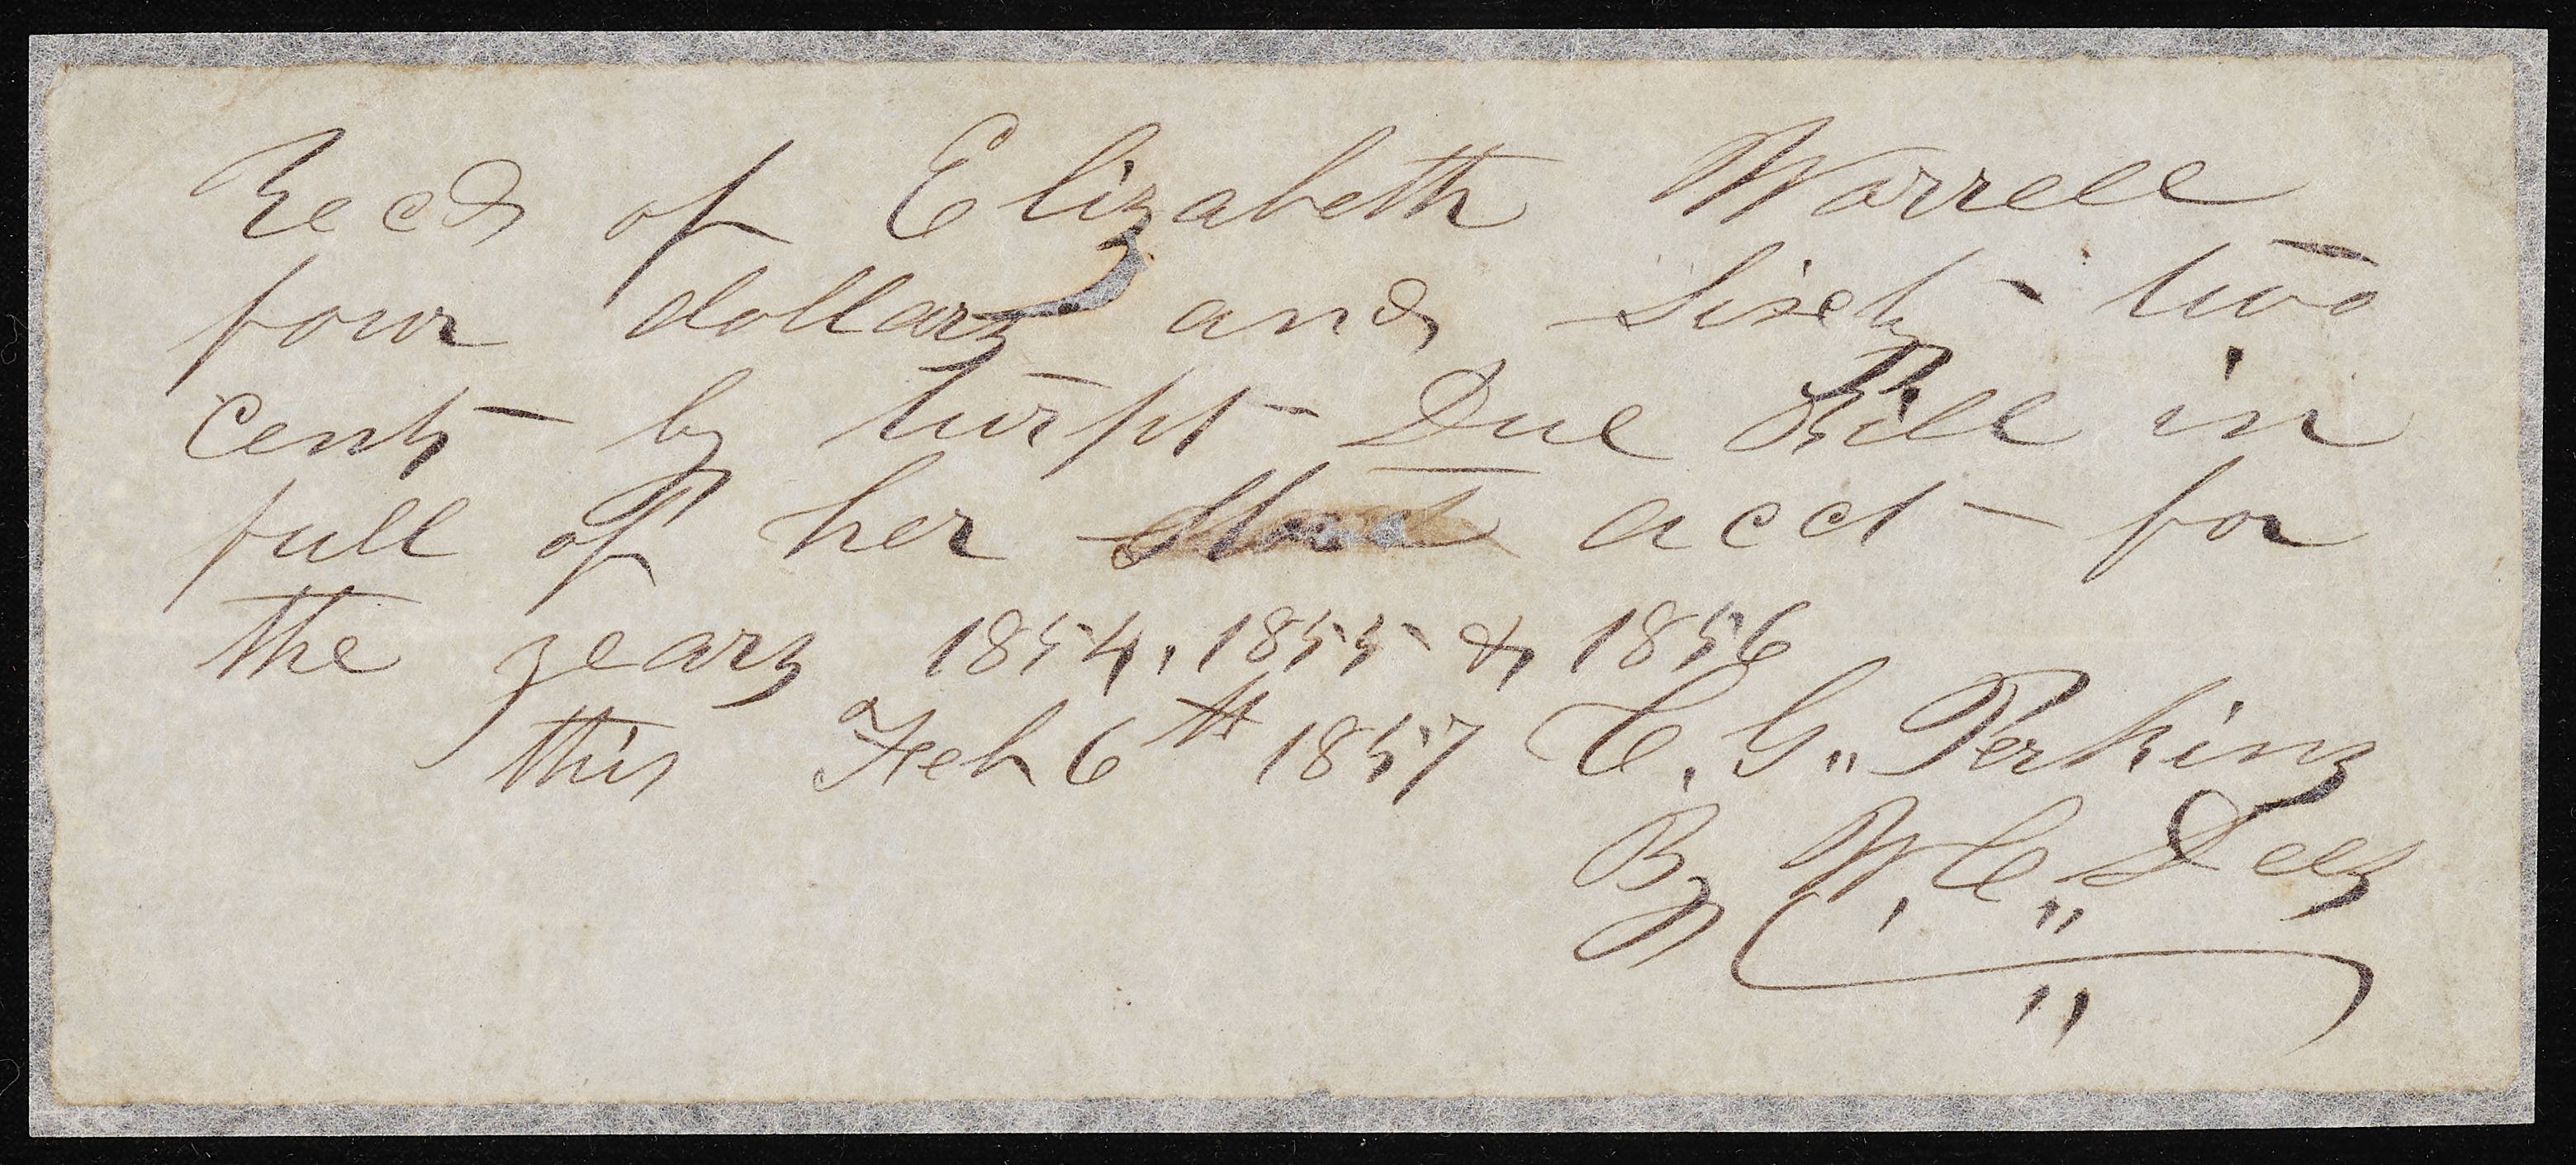 Recd of Elizabeth Worrell
four dollars and Sixty - two
Cents by turpt Due Bill in
full of her acct for
the years 1854, 1855 & 1856
this Feb 6th 1857 C. G. Perkins
By W. C. Dees